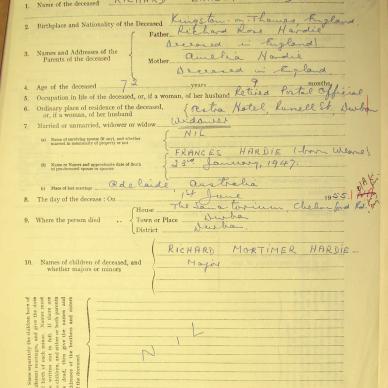 1. Name of the deceased RICHARD
2. Birthplace and Nationality of the Deceased Kingston-on-Thames, England
3. Names and Addresses of the Parents of the deceased
Father Richard Rose Hardie
Deceased in England
Mother Amelia Hardie
Deceased in England
4. Age of the deceased 72 years 9 months,
5. Occupation in life of the deceased, or, if a woman, of her husband Retired Postal Official
6. Ordinary place of residence of the deceased, or, if a woman, of her husband Hotel, Russell St. Durban
7. Married or unmarried, widower or widow Widower
(a) Name of surviving spouse (if any), and whether married in community of property or not NIL
(b) Name or Names and approximate date of death of pre-deceased spouse or spouses FRANCES HARDIE (born
23rd January, 1947.
(c) Place of last marriage Adelaide, Australia
8. The day of the decease : On 1st June 1955.
9. Where the person died
House The Sanatorium, Chelmsford Rd.
Town or Place Durban
District Durban.
10. Names of children of deceased, and whether majors or minors
RICHARD MORTIMER HARDIE
Major
NIL